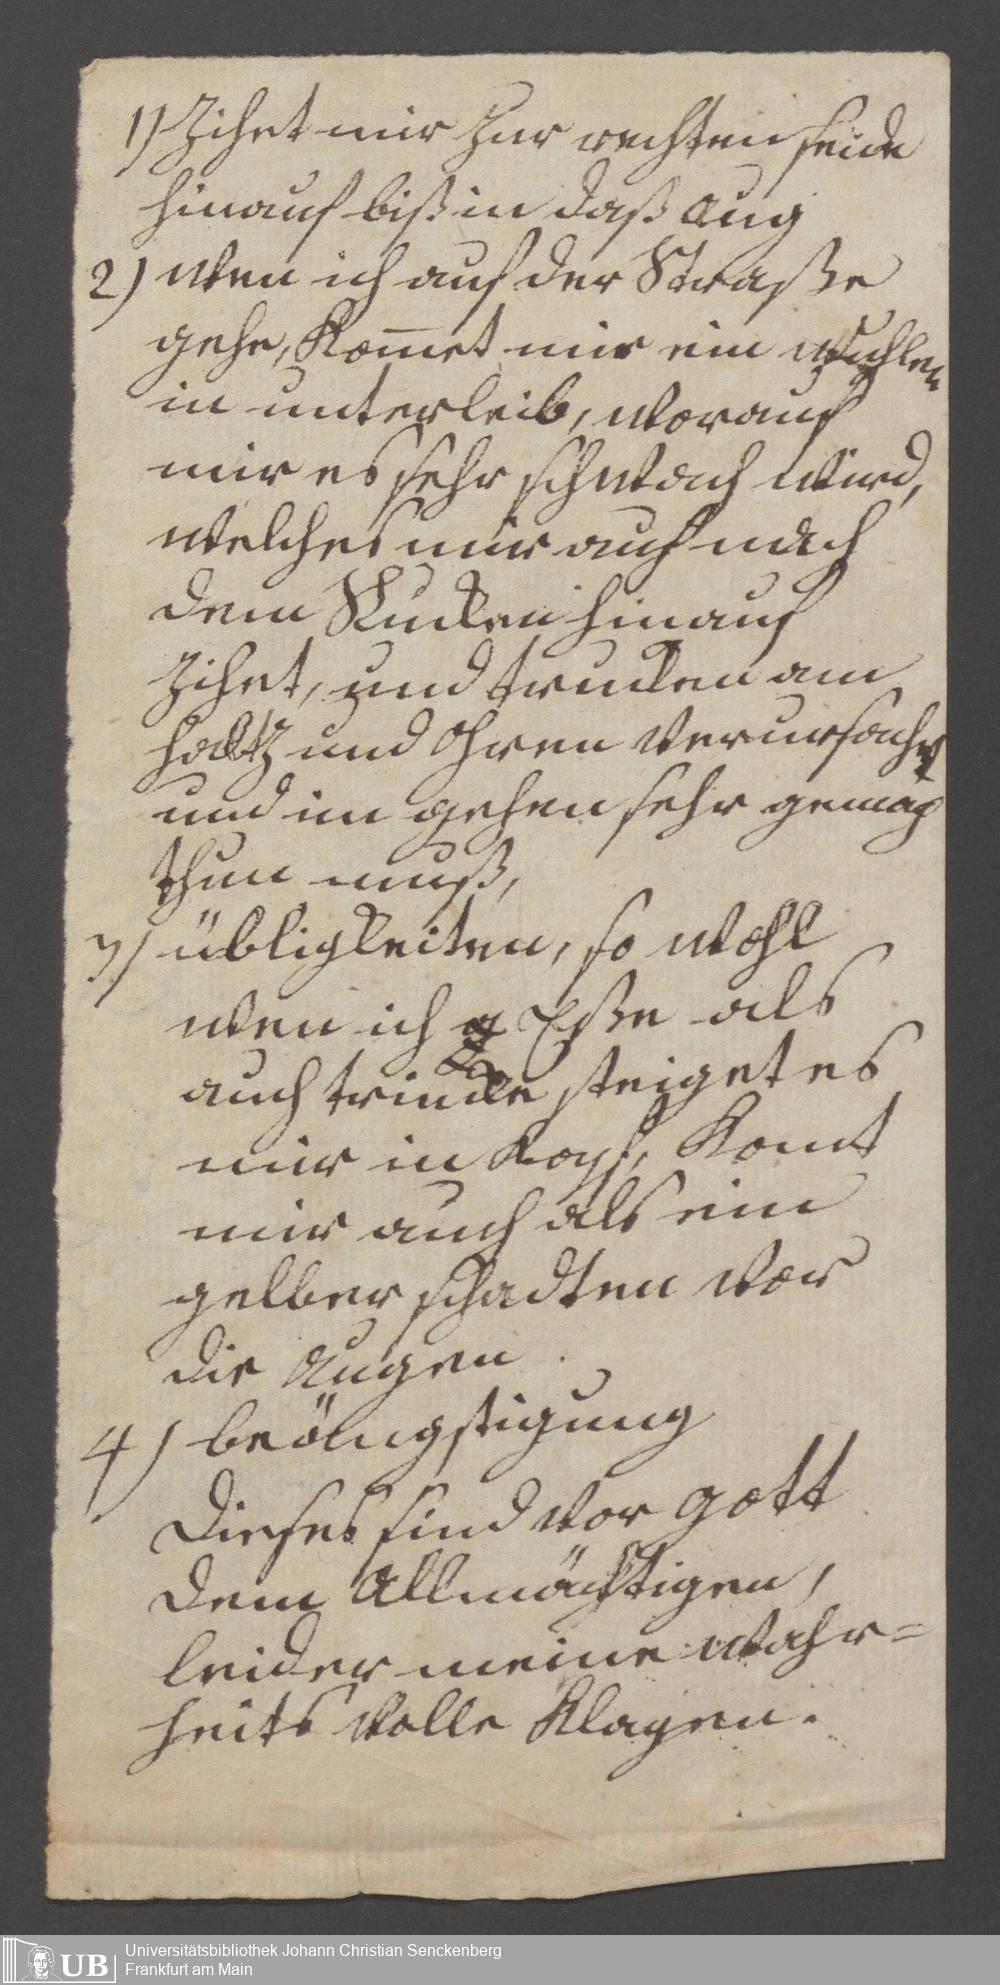 1) Zihet mir Zur rechten seide
hinauf biß in daß Aug
2) Wen ich auf der Straße
gehe, Kom̅et mir ein Wuhlen
in unterleib, Worauf
mir es sehr schwach Wird,
Welches mir auch nach
dem Rucken hinauf
Zihet, und trucken am
haltz und Ohren Verursacht
und im gehen sehr gemach
thun muß,
3) übligkeiten, so Wohl
Wen ich Eße als
auch trincke steiget es
mir in Kopf, Komt
mir auch als ein
gelber schadten Vor
die Augen.
4) beängstigung
Dieses sind Vor gott
dem Allmächtigen,
leider meine Wahr=
heits Volle Klagen.
Universitätsbibliothek Johann Christian Senckenberg
UB Frankfurt am Main